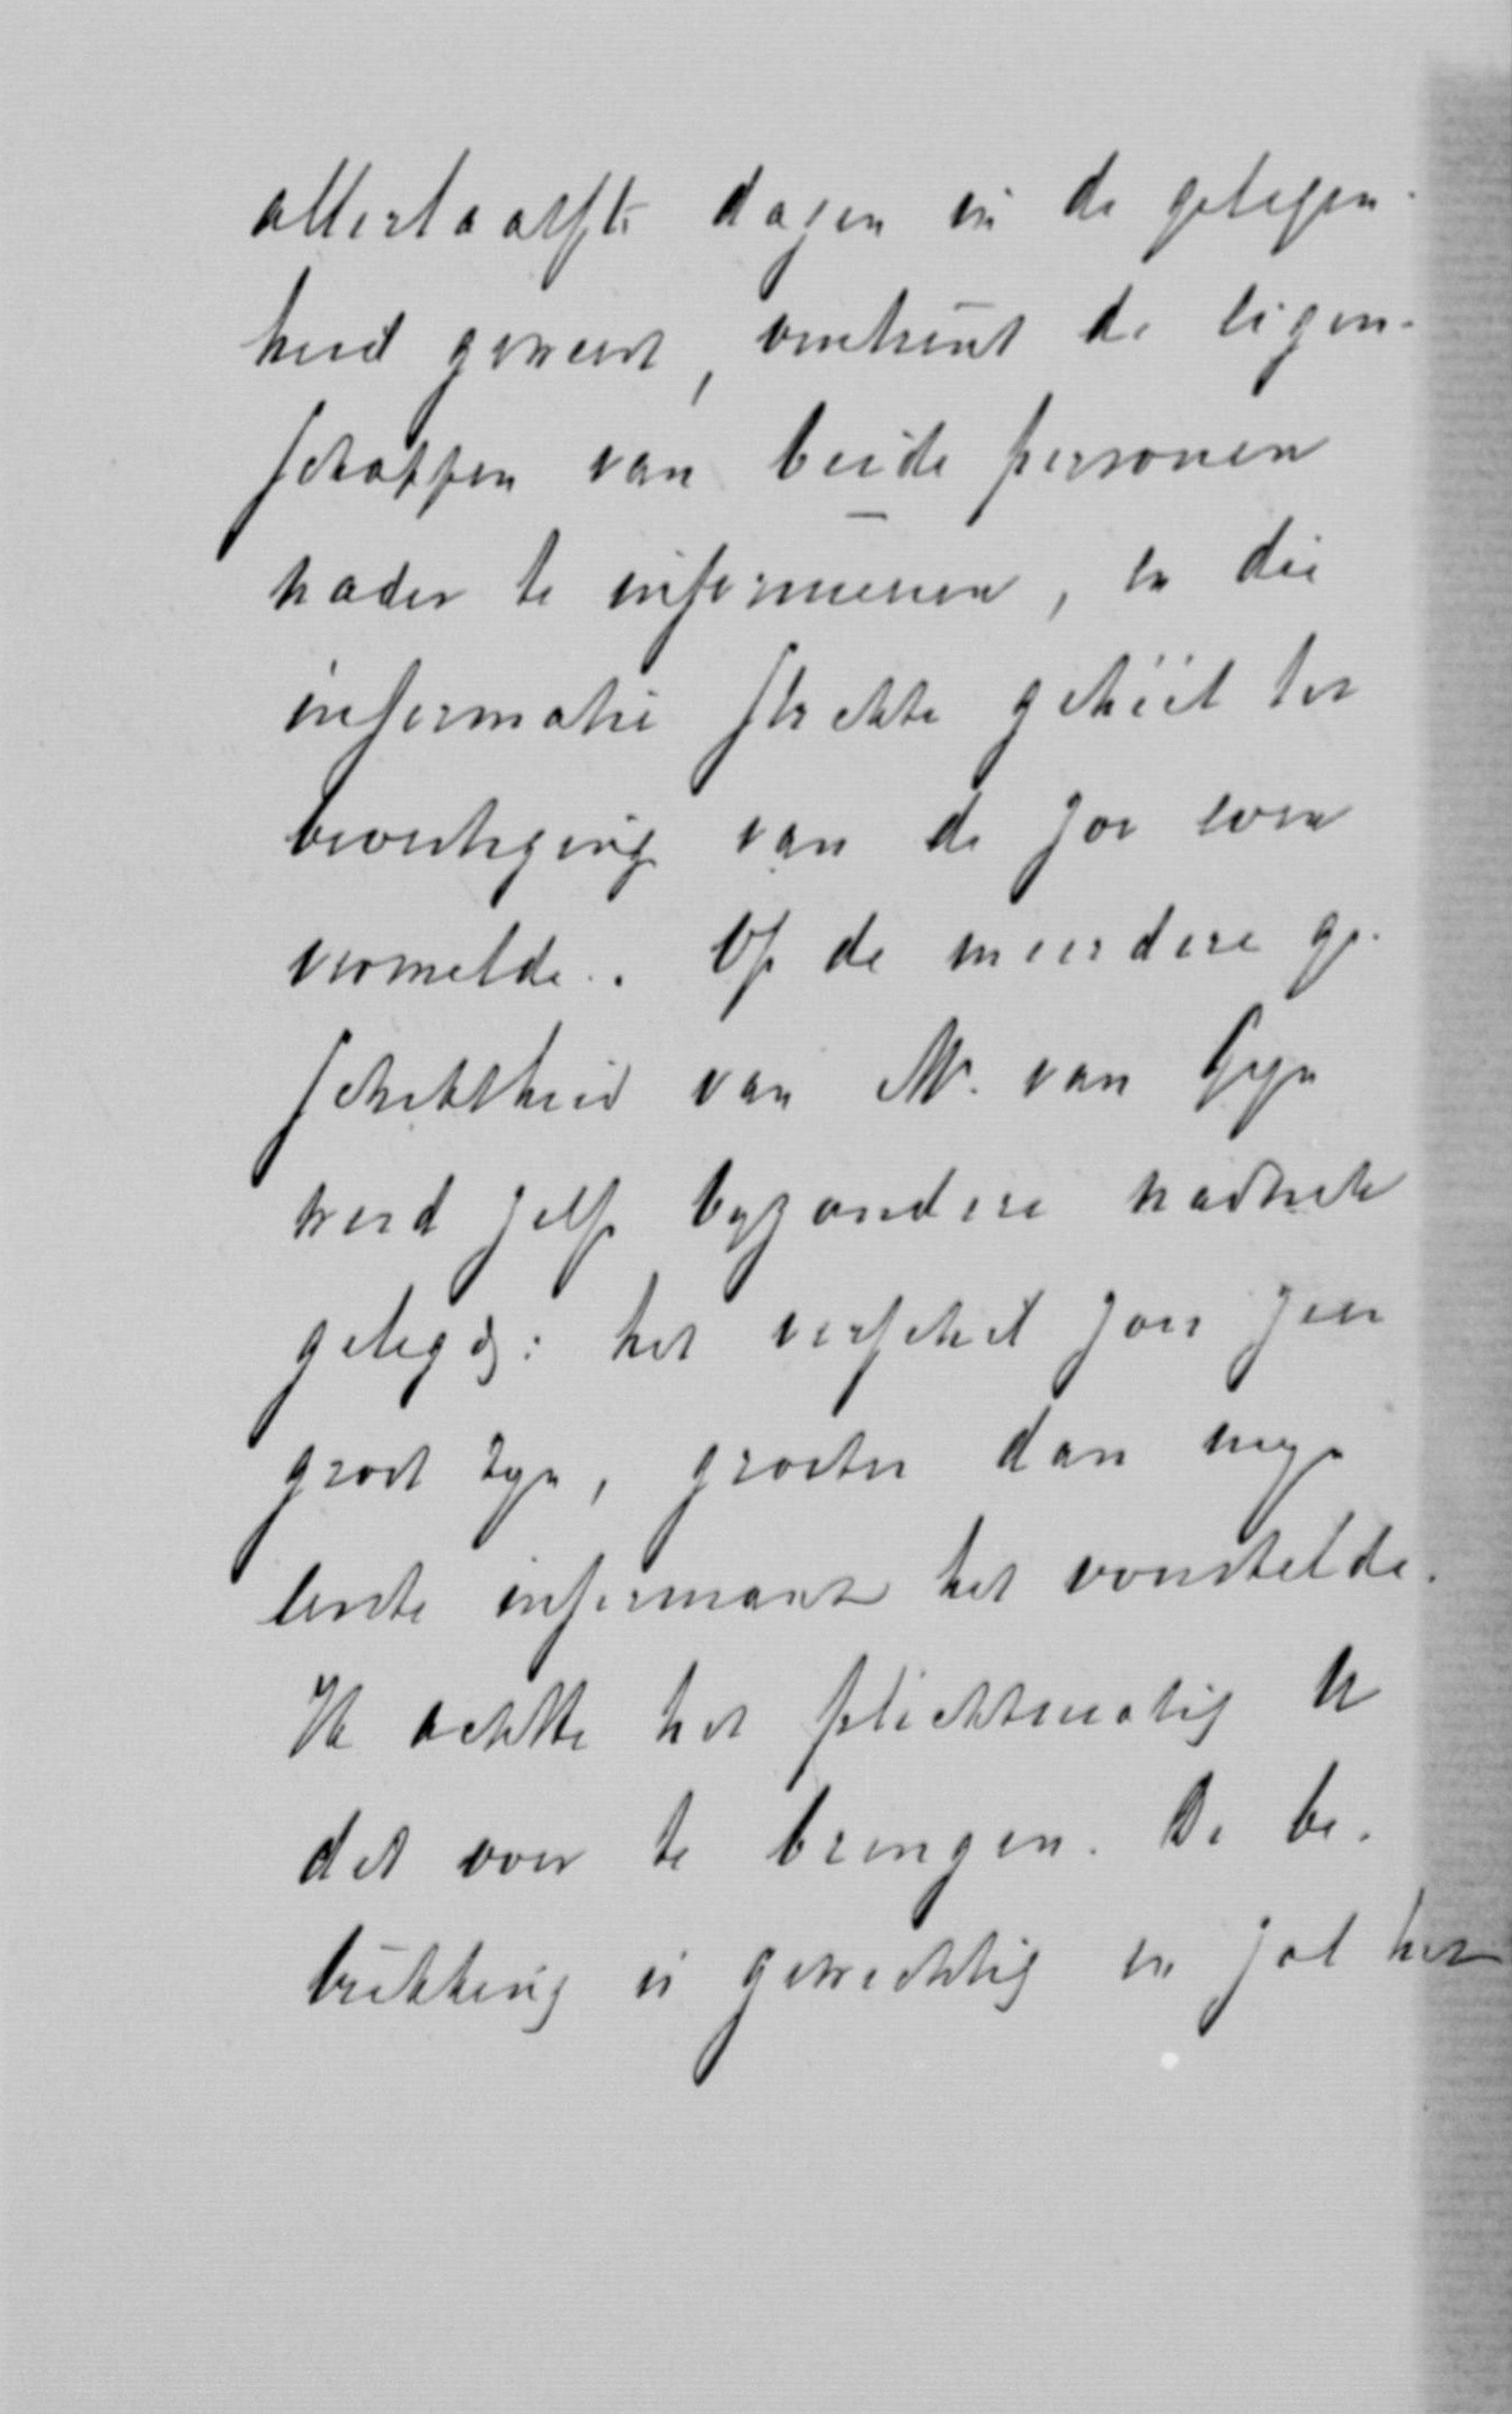 allerlaatste dagen in de gelegen-
heid geweest, omtrent de eigen-
schappen van beide personen
nader te informeren, en die
informatie strekte geheel ter
bevestiging van de zoo even
vermelde. Op de meerdere ge-
schiktheid van Mr. van Gyn
werd zelfs byzondere nadruk
gelegd: het verschil zou zeer
groot zyn, grooter dan myn
eerste informant het voorstelde.
Ik achtte het plichtmatig U
dit over te brengen. De be-
trekking is gewichtig en zal het